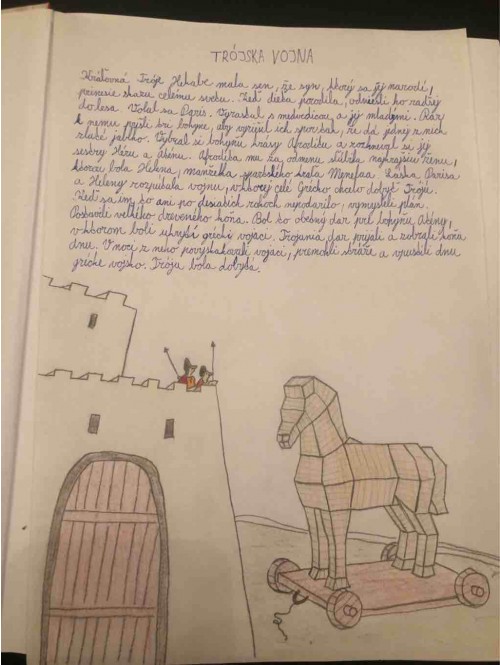 TRÓJSKA VOJNA
Kráľovná Tróje Hekabe mala sen, že syn, ktorý sa jej narodí,
prinesie skazu celému svetu. Keď dieťa porodila, odniesli ho radšej
do lesa. Volal sa Paris. Vyrastal s medvedicou a jej mladými. Raz
k nemu prišli tri bohyne, aby vyriešil ich spor tak, že dá jednej z nich
zlaté jablko. Vybral si bohyňu krásy Afroditu a rozhneval si jej
sestry Héru a Aténu. Afrodita mu za odmenu sľúbila najkrajšiu ženu,
ktorou bola Helena, manželka spartského kráľa Menelaa. Láska Parisa
a Heleny rozpútala vojnu, v ktorej celé Grécko chcelo dobyť Tróju.
Keď sa im to ani po desiatich rokoch nepodarilo, vymysleli plán.
Postavili veľkého dreveného koňa. Bol to obetný dar pre bohyňu Aténu,
v ktorom boli ukrytí grécki vojaci. Trójania dar prijali a zobrali koňa
dnu. V noci z neho povyskakovali vojaci, premohli stráže a vpustili dnu
grécke vojsko. Trója bola dobytá.